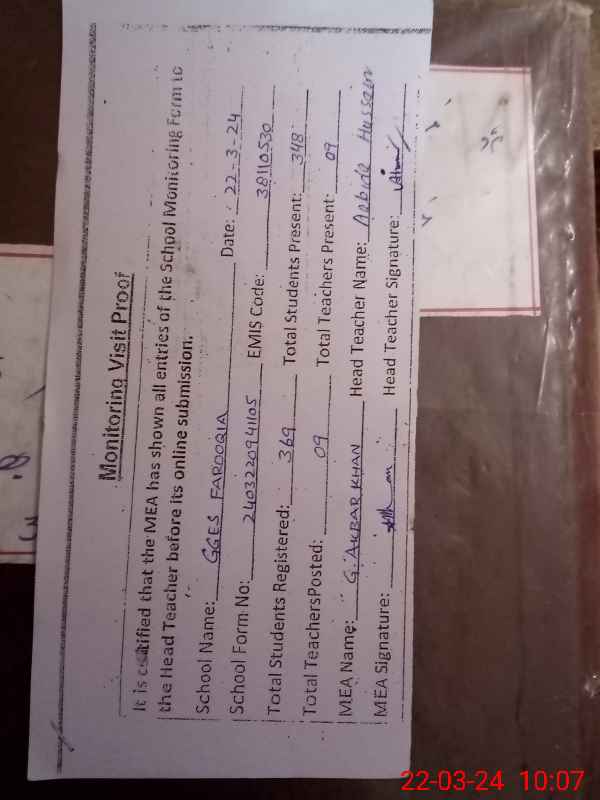 Monitoring Visit Proof
It is certified that the MEA has shown all entries of the School Monitoring Form to
the Head Teacher before its online submission.
School Name: GGES FAROOQIA Date: 22-3-24
School Form No: 2403220941105 EMIS Code: 38110530
Total Students Registered: 369 Total Students Present: 348
Total TeachersPosted: 09 Total Teachers Present: 09
MEA Name: G. AKBAR KHAN Head Teacher Name: Hussain
MEA Signature: Head Teacher Signature:
22-03-24 10:07